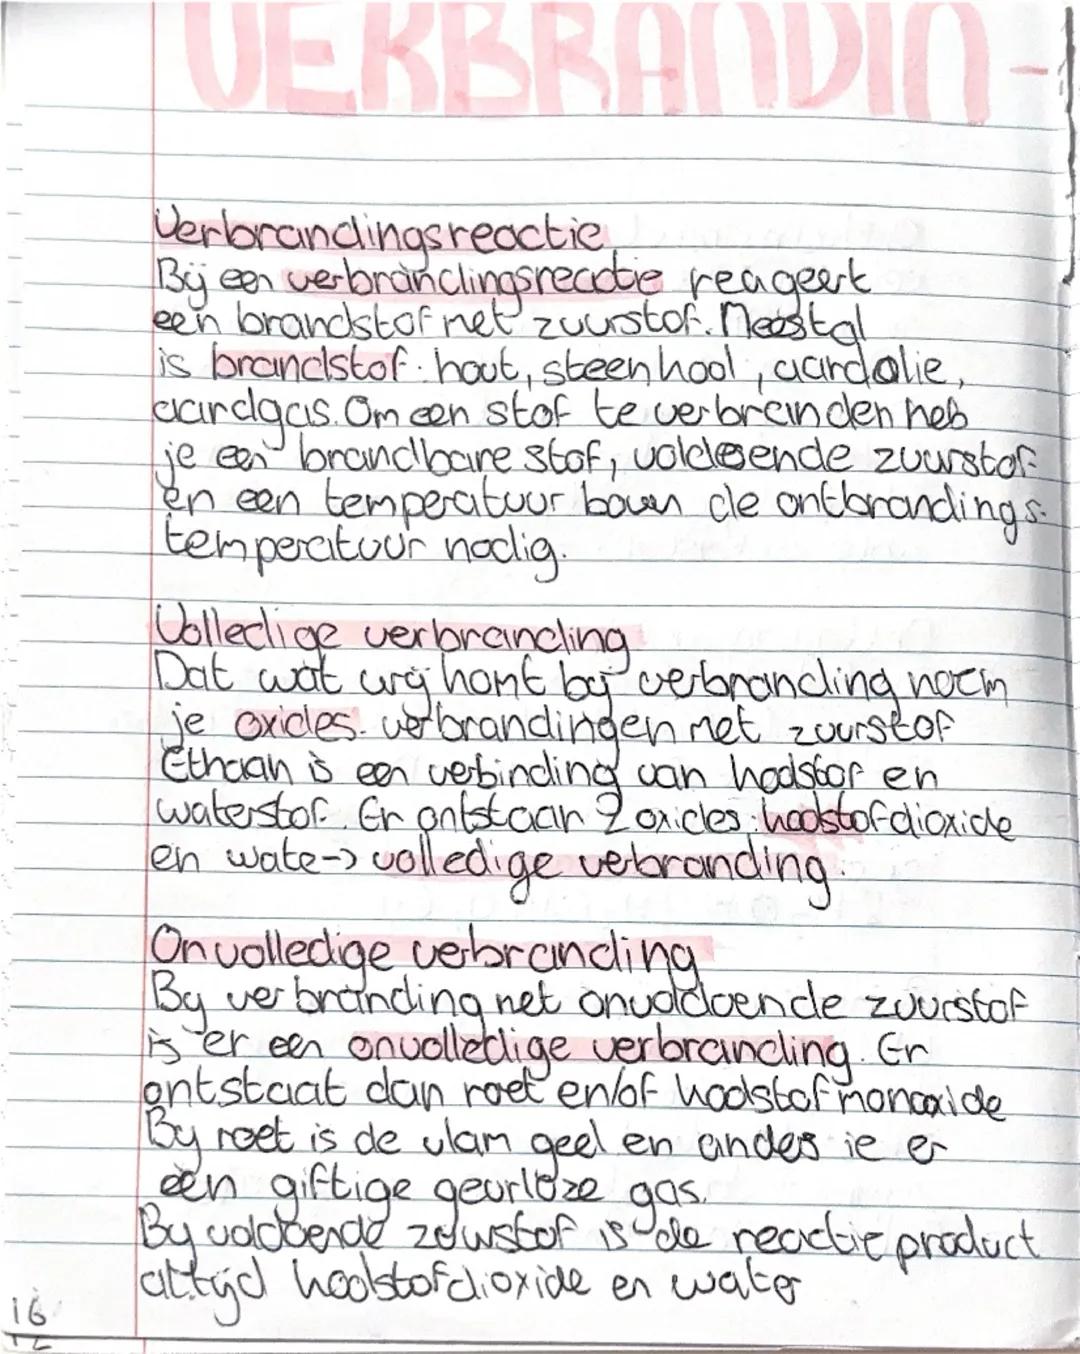 VERBRANDIN-
Verbrandingsreactie
Bij een verbrandingsreactie reageert
een brandstof met zuurstof. Meestal
is brandstof: hout, steenkool, aardolie,
aardgas. Om een stof te verbranden heb
je een brandbare stof, voldoende zuurstof
en een temperatuur boven de ontbrandings-
temperatuur nodig.
Volledige verbranding
Dat wat vrij komt bij verbranding noem
je oxides. verbrandingen met zuurstof
Ethaan is een verbinding van koolstof en
waterstof. Er ontstaan 2 oxides: koolstofdioxide
en wate-> volledige verbranding.
Onvolledige verbranding
By verbranding met onvoldoende zuurstof
is er een onvolledige verbranding. Er
ontstaat dan roet en/of koolstofmonoxide
By roet is de vlam geel en anders is er
een giftige geurloze gas.
By voldoende zuurstof is de reactie product
altijd koolstofdioxide en water
16
12